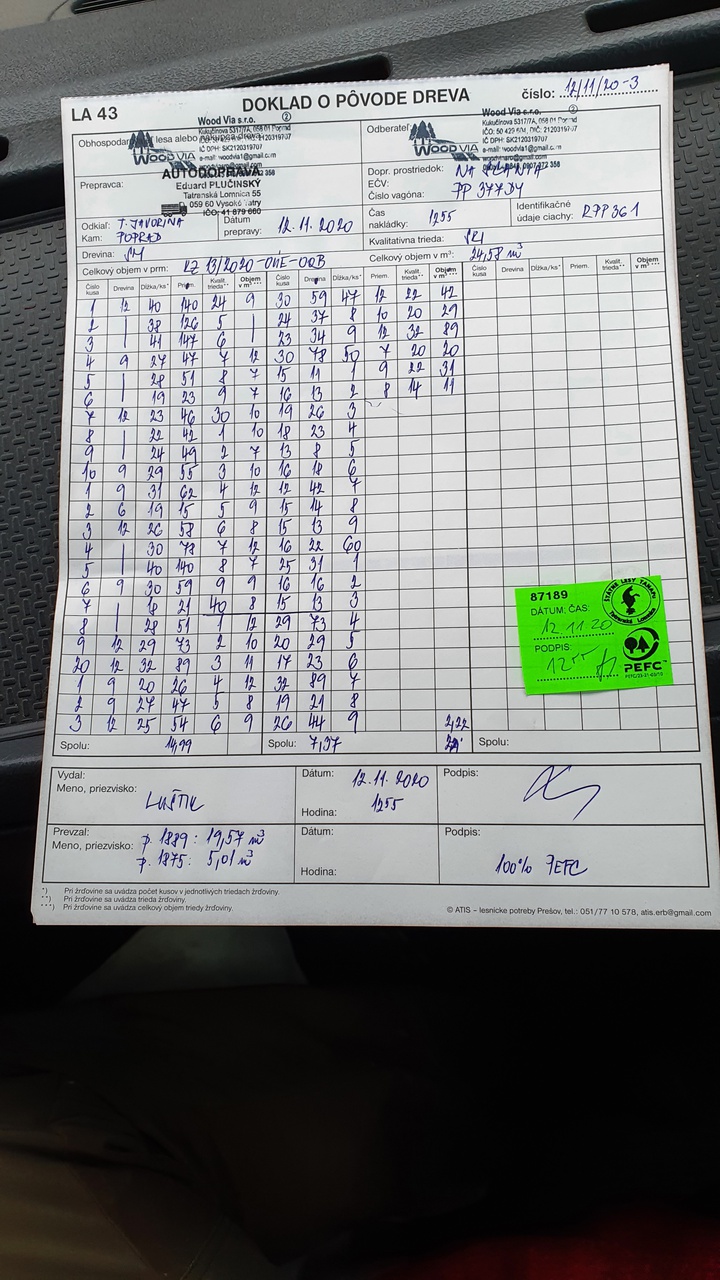 LA 43
DOKLAD O PÔVODE DREVA
číslo: 12/11/20-3
Wood Via s.r.o. ②
Kukučínova 5317/7A, 058 01 Poprad
IČ DPH: SK2120319707
e-mail: woodvia1@gmail.com
WOODVIA
Odberateľ:
Wood Via s.r.o. ②
Kukučínova 5317/7A, 058 01 Poprad
IČO: 50 429 604, DIČ: 2120319707
IČ DPH: SK2120319707
e-mail: woodvia1@gmail.com
WOODVIA
Prepravca:
AUTODOPRAVA
Eduard PLUČINSKÝ
Tatranská Lomnica 55
059 60 Vysoké Tatry
IČO: 41 879 660
Dopr. prostriedok:
EČV: PP 377DY
Číslo vagóna:
Odkiaľ: T. JAVORINA
Kam: POPRAD
Dátum prepravy: 12.11.2020
Čas nakládky: 1255
Identifikačné údaje ciachy: RPP361
Drevina: SM
Kvalitatívna trieda:
Celkový objem v prm:
Celkový objem v m³: 24,58 m³
Číslo kusa Drevina Dĺžka/ks* Priem. Kvalit. trieda** Objem v m³ *** Číslo kusa Drevina Dĺžka/ks* Priem. Kvalit. trieda** Objem v m³ *** Číslo kusa Drevina Dĺžka/ks* Priem. Kvalit. trieda** Objem v m³ ***
1 12 40 140 24 9 30 59 47 12 22 42
2 | 38 126 5 | 24 37 8 10 20 29
3 | 41 147 6 | 23 34 9 12 32 89
4 9 27 47 7 12 30 78 50 7 20 20
5 | 28 51 8 7 15 11 1 9 22 31
6 | 19 23 9 7 16 13 2 8 14 11
7 12 23 46 30 10 19 26 3
8 | 22 42 1 10 18 23 4
9 | 24 49 2 7 13 8 5
10 9 29 55 3 10 16 18 6
1 9 31 62 4 12 12 42 7
2 6 19 15 5 9 15 14 8
3 12 26 58 6 8 15 13 9
4 | 30 78 7 12 16 22 60
5 | 40 140 8 7 25 31 1
6 9 30 59 9 9 16 16 2
7 | 18 21 40 8 15 13 3
8 | 28 51 1 12 29 73 4
9 12 29 73 2 10 20 29 5
20 12 32 89 3 11 17 23 6
1 9 20 26 4 12 32 89 7
2 9 27 47 5 8 19 21 8
3 12 25 54 6 9 26 44 9 2,22
Spolu: 14,99 Spolu: 7,37 Spolu:
87189
DÁTUM, ČAS:
12 11 20
PODPIS:
1255
ŠTÁTNE LESY TANAPu
Tatranská Lomnica
PEFC™
Vydal:
Meno, priezvisko: LUŠTIK
Dátum: 12.11.2020
Hodina: 1255
Podpis:
Prevzal:
Meno, priezvisko:
p. 1889: 19,57 m³
p. 1875: 5,01 m³
Dátum:
Hodina:
Podpis:
100% PEFC
*) Pri žrďovine sa uvádza počet kusov v jednotlivých triedach žrďoviny.
**) Pri žrďovine sa uvádza trieda žrďoviny.
***) Pri žrďovine sa uvádza celkový objem triedy žrďoviny.
© ATIS – lesnícke potreby Prešov, tel.: 051/77 10 578, atis.erb@gmail.com